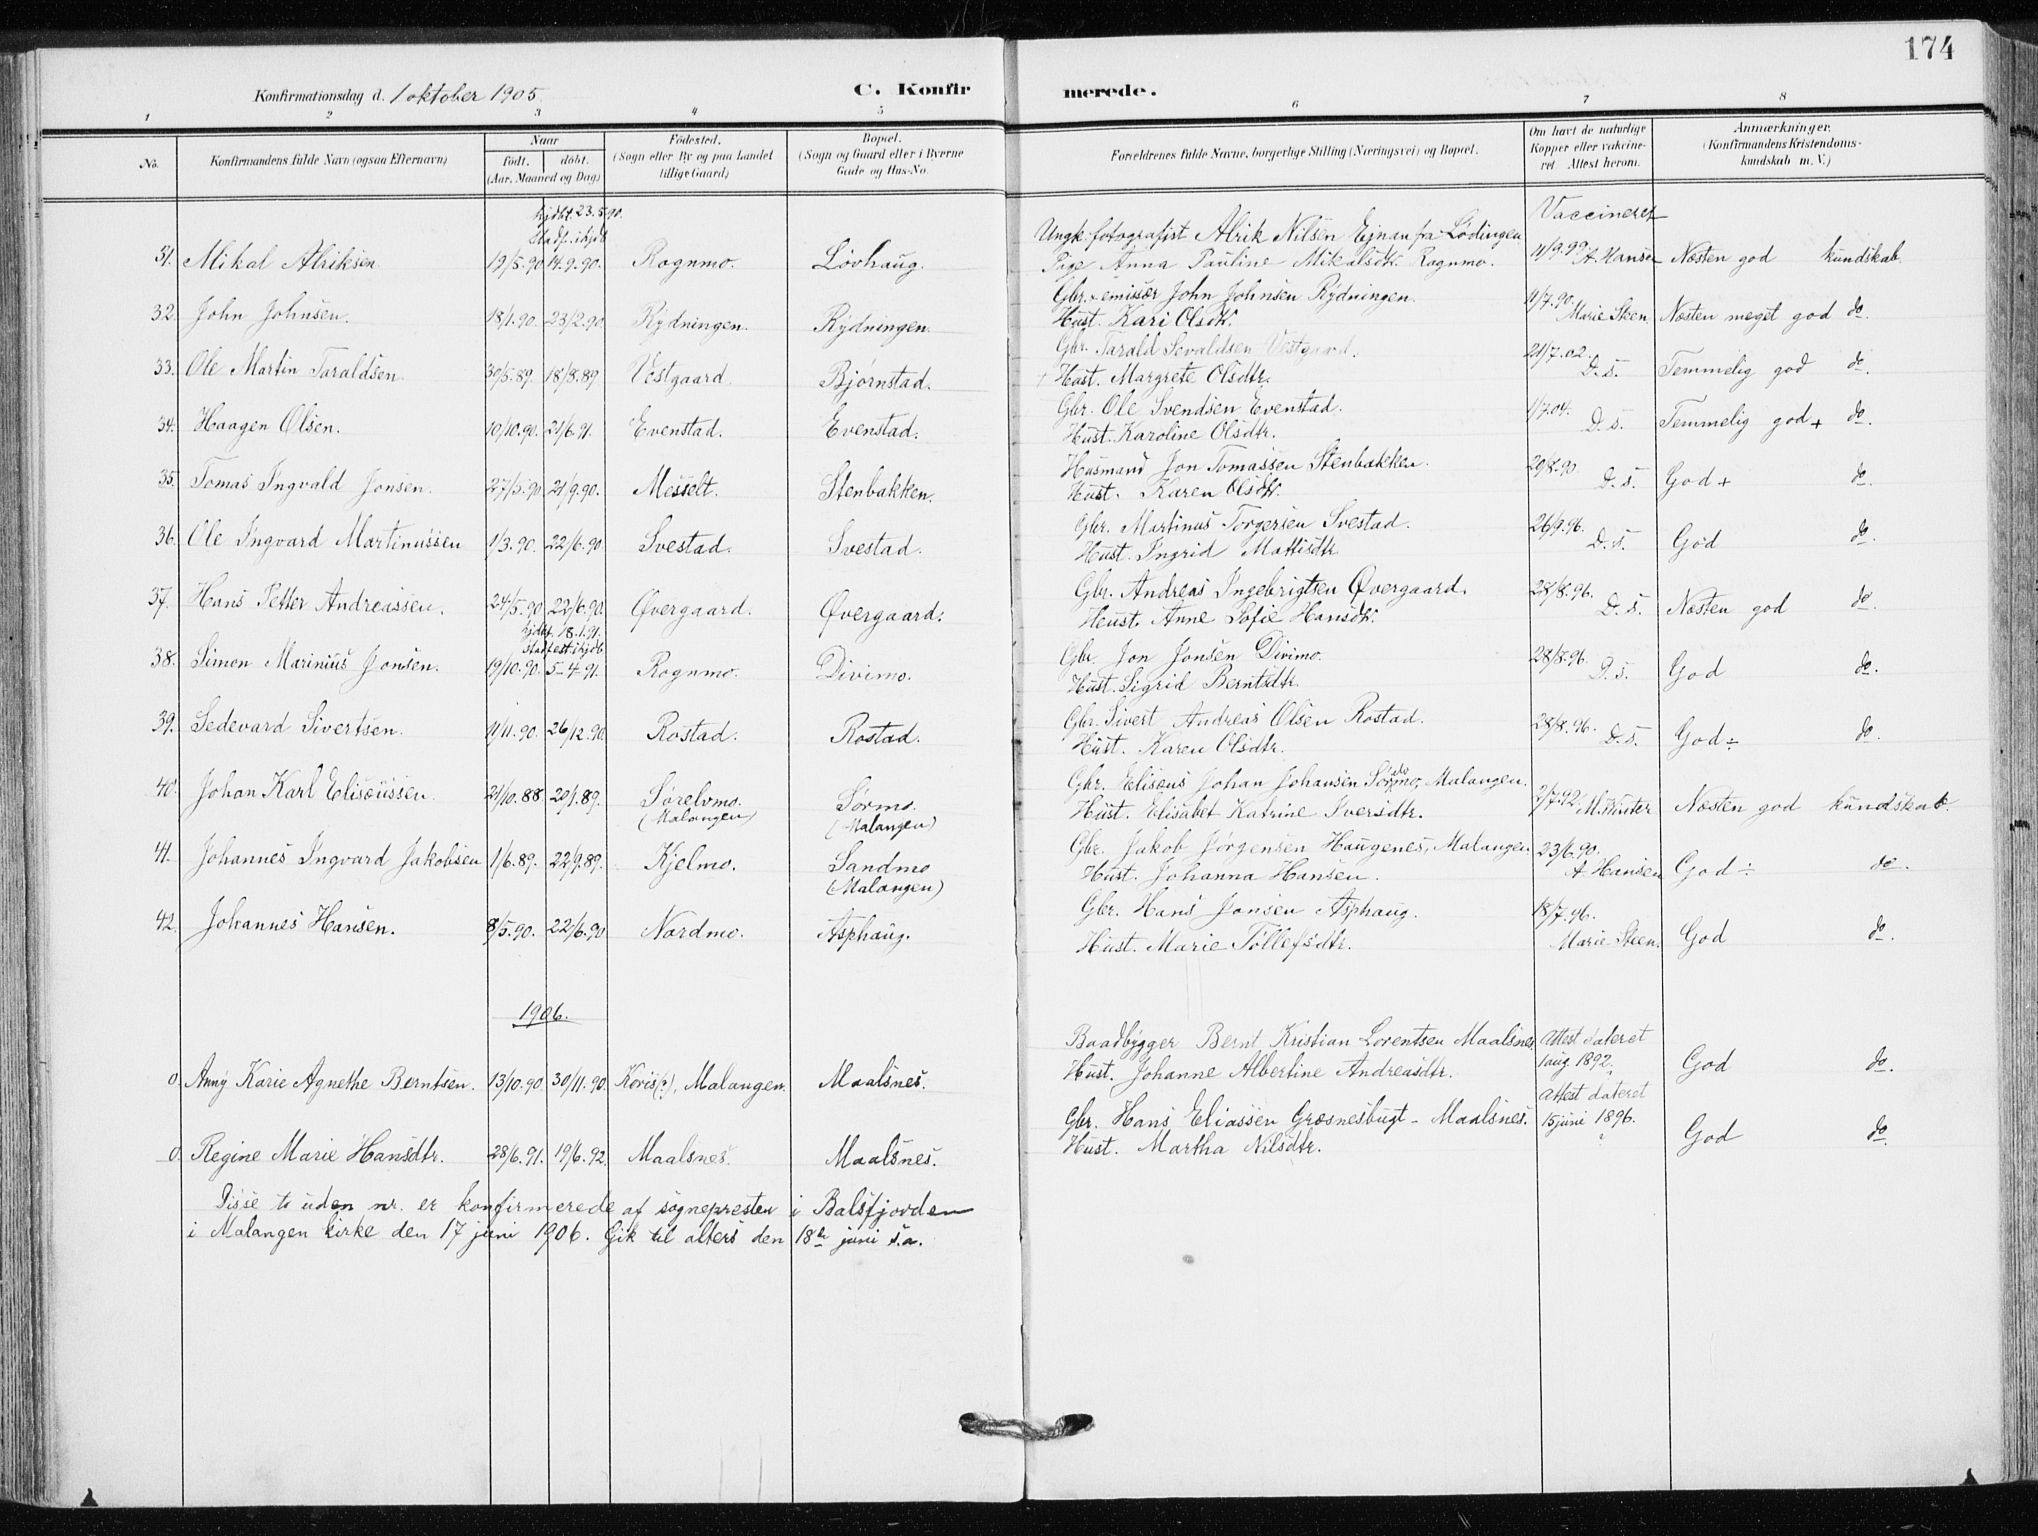 174
Konfirmationsdag d. 1 oktober 1905.
C. Konfirmerede.
1 2 3 4 5 6 7 8
No.
Konfirmandens fulde Navn (ogsaa Efternavn)
Naar
født. døbt.
(Aar, Maaned og Dag)
Fødested.
(Sogn eller By og paa Landet
tillige Gaard)
Bopæl.
(Sogn og Gaard eller i Byerne
Gade og Hus-No.
Forældrenes fulde Navne, borgerlige Stilling (Næringsvei) og Bopæl.
Om havt de naturlige
Kopper eller vakcine-
ret Attest herom.
Anmærkninger.
(Konfirmandens Kristendoms-
kundskab m. V.)
Vaccineret
hjdbt. 23.5.90.
Stadf. i hjdb
31. Mikal Alriksen 19/5.90 14.9.90. Rognmo. Løvhaug. Ungk. fotografist Alrik Nilsen Ejnan fra Lødingen
Pige Anna Pauline Mikalsdtr. Rognmo. 11/9.99 A. Hansen Næsten god kundskab.
32. John Johnsen. 18/1.90. 23/2.90 Rydningen. Rydningen. Gbr. + emissær John Johnsen Rydningen.
Hust. Kari Olsdtr. 11/7.90. Marie Steen. Næsten meget god do.
33. Ole Martin Taraldsen. 30/5.89. 18/8.89 Vestgaard. Bjørnstad. Gbr. Tarald Sevaldsen Vestgaard.
† Hust. Margrete Olsdtr. 21/7.02. D. s. Temmelig god do.
34. Haagen Olsen. 10/10.90. 21/6.91. Evenstad. Evenstad. Gbr. Ole Svendsen Evenstad.
Hust. Karoline Olsdtr. 1/7.04. D. s. Temmelig god + do.
35. Tomas Ingvald Jonsen. 27/5.90 21/9.90. Messelt. Stenbakken. Husmand Jon Tomassen Stenbakken.
Hust. Karen Olsdtr. 20/8.90 D. s. God + do.
36. Ole Ingvard Martinussen 1/3.90. 22/6.90. Svestad. Svestad. Gbr. Martinus Torgersen Svestad.
Hust. Ingrid Mattisdtr. 26/9.96. D. s. God do.
37. Hans Petter Andreassen. 24/5.90 22/6.90. Øvergaard. Øvergaard. Gbr. Andreas Ingebrigtsen Øvergaard.
Hust. Anne Sofie Hansdtr. 28/8.96. D. s. Næsten god do.
hjdbt. 18.1.91.
stadfest. i hjdb.
38. Simon Marinius Jonsen. 19/10.90. 5-4-91. Rognmo. Divimo. Gbr. Jon Jonsen Divimo.
Hust. Sigrid Berntsdtr. 28/8.96. D. s. God do.
39. Sedevard Sivertsen. 11/11.90. 26/12.90. Rostad. Rostad. Gbr. Sivert Andreas Olsen Rostad.
Hust. Karen Olsdtr. 28/8.96. D. s. God ÷ do.
40. Johan Karl Elisæussen. 21/10.88 20/1.89. Sørelvmo.
(Malangen) Sørmo.
(Malangen) Gbr. Elisæus Johan Johansen Sørmo, Malangen.
Hust. Elisabet Katrine Iversdtr. 2/7.92, M. Winter Næsten god kundskab.
41. Johannes Ingvard Jakobsen 1/6.89. 22/9.89. Kjelmo. Sandmo
(Malangen) Gbr. Jakob Jørgensen Haugenes, Malangen.
Hust. Johanna Hansen. 23/6.90. A Hansen God ÷ do.
42. Johannes Hansen. 8/5.90. 22/6.90 Nordmo. Asphaug. Gbr. Hans Jonsen Asphaug.
Hust. Marie Tollefsdtr. 18/7.96. Marie Steen. God do.
1906.
0. Anny Karie Agnethe Berntsen. 13/10.90 30/11.90. Koris(?), Malangen. Maalsnes. Baadbygger Bernt Kristian Lorentsen Maalsnes
Hust. Johanne Albertine Andreasdtr. Attest dateret
1 aug 1892. God do.
0. Regine Marie Hansdtr. 28/6.91. 19/6.92. Maalsnes. Maalsnes. Gbr. Hans Eliassen Græsnesbugt - Maalsnes.
Hust. Martha Nilsdtr. Attest dateret
15 juni 1896. God do.
Disse to uden nr. er konfirmerede af sognepresten i Balsfjorden
i Malangen kirke den 17 juni 1906. Gik til alters den 18de juni s.a.